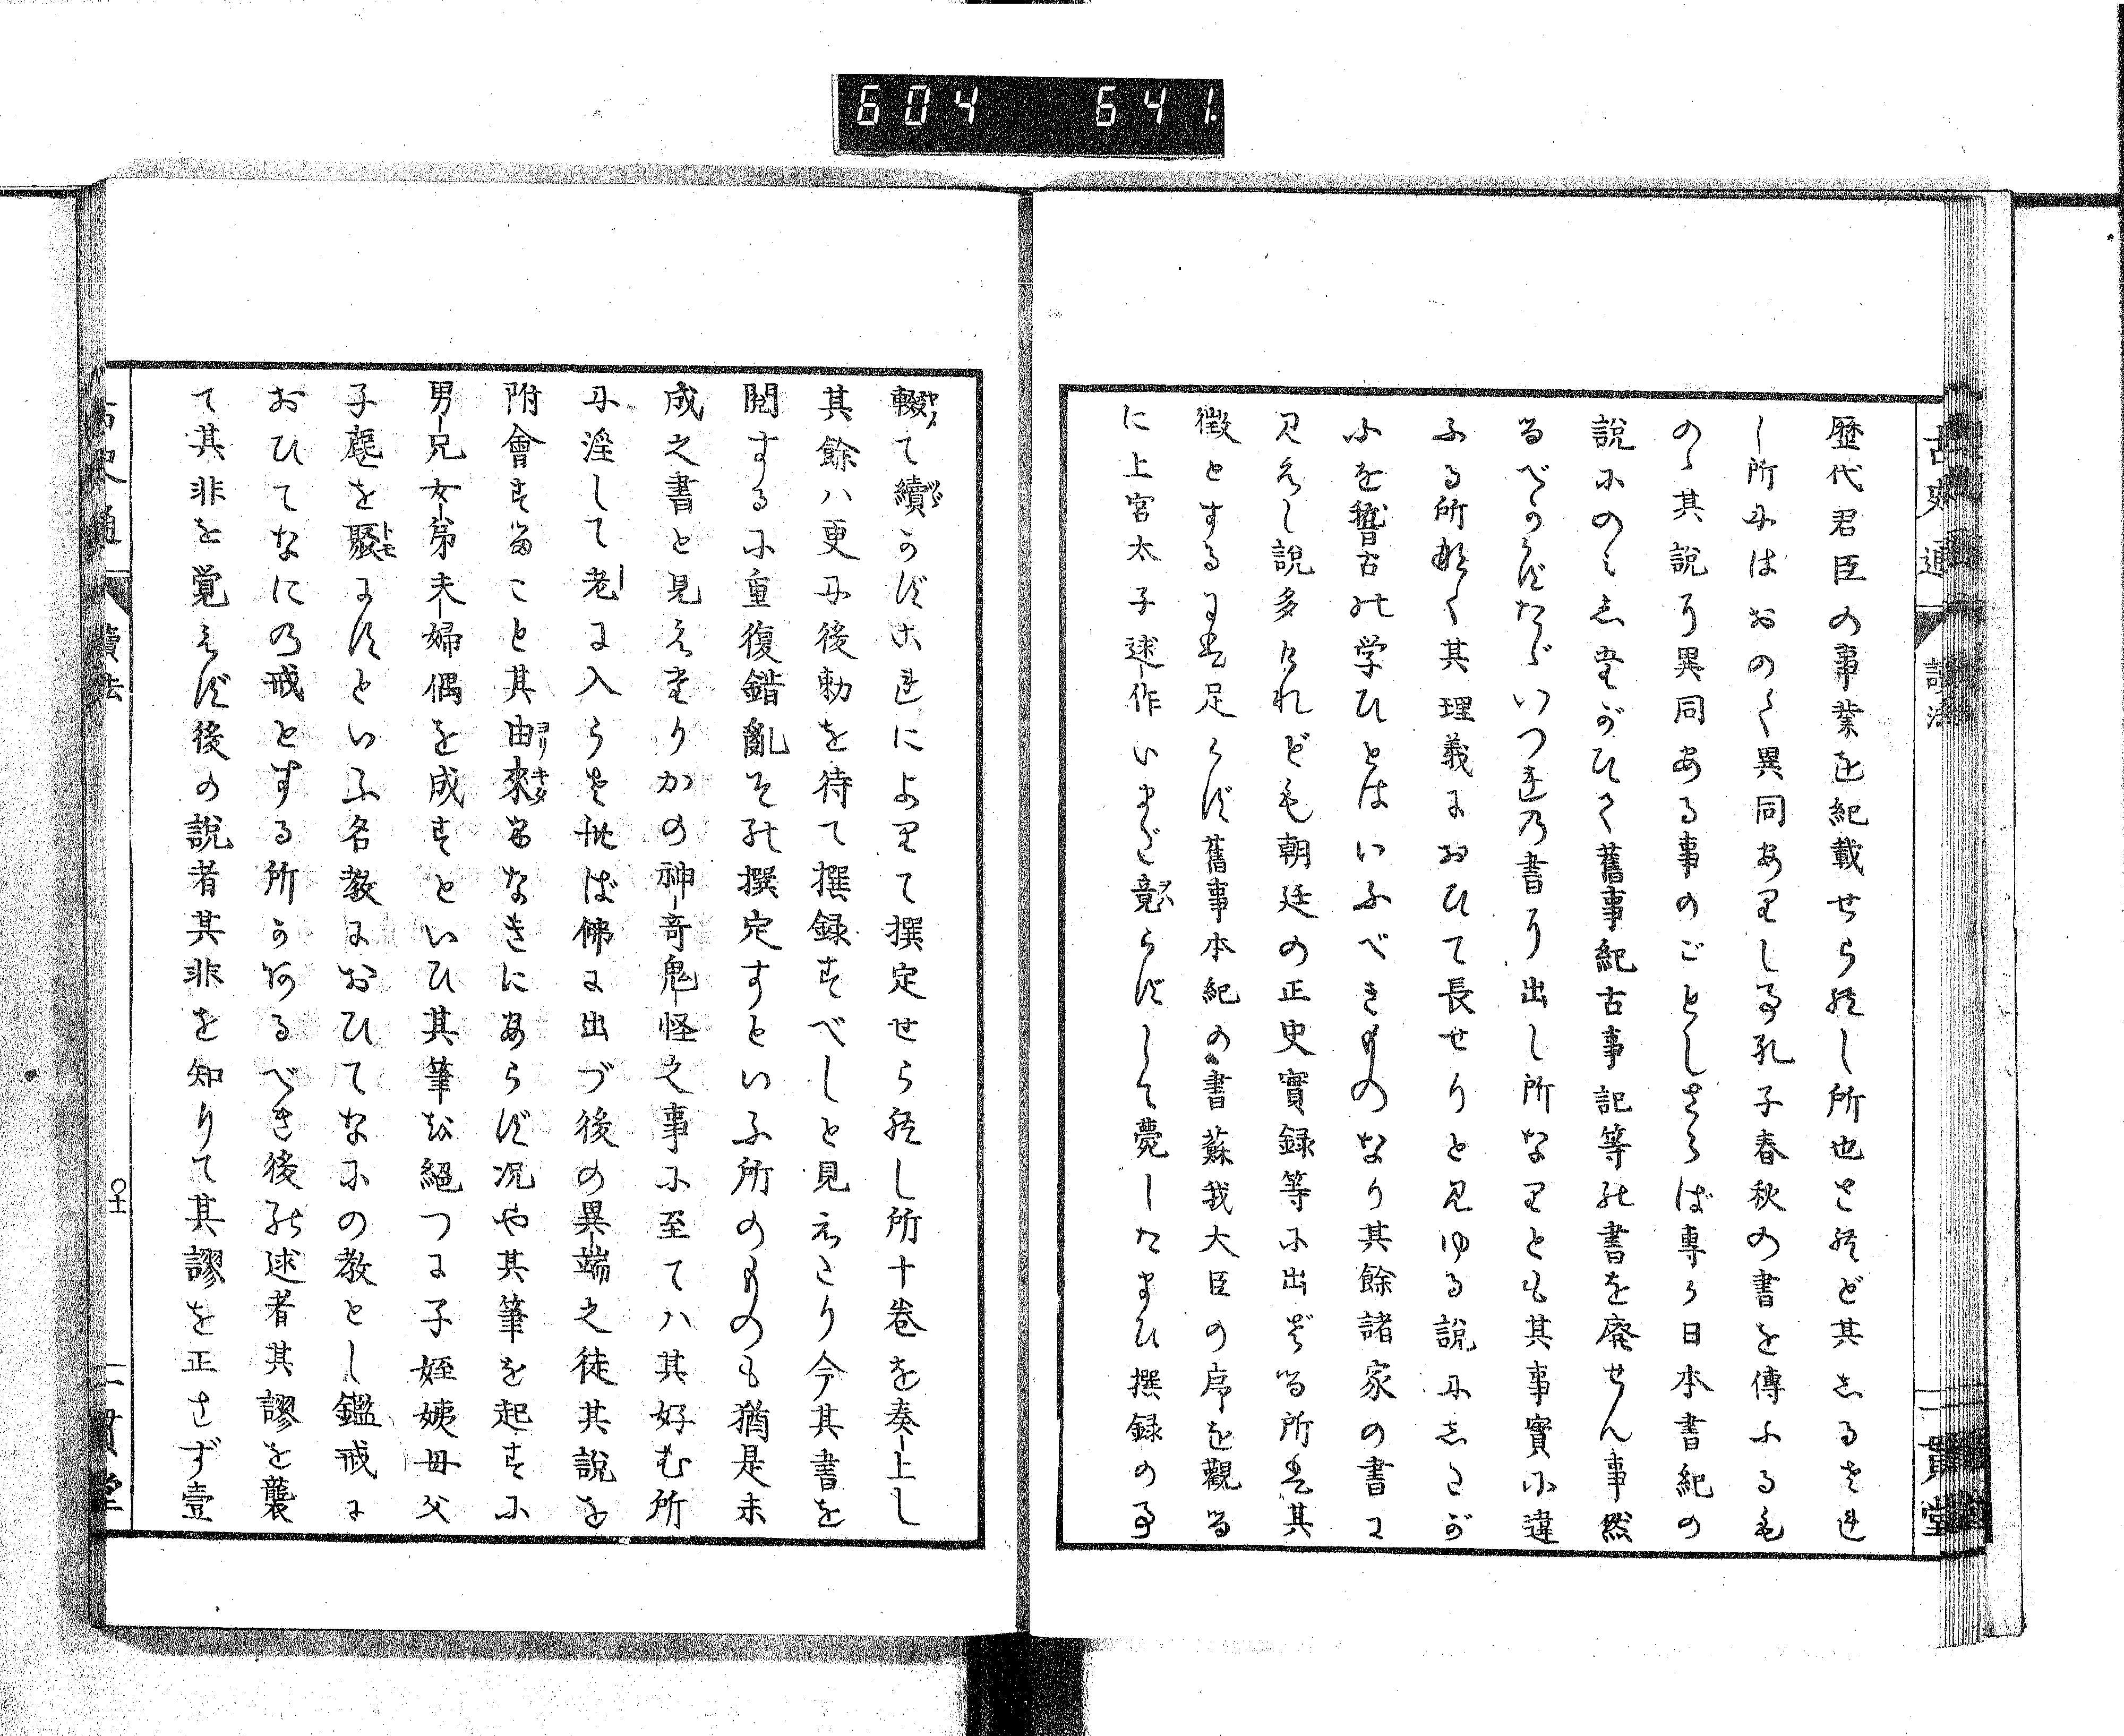 604 641.
古史通 讀法 一貫堂
歴代君臣の事業を紀載せられし所也されど其しるされ
し所にはおのく異同ありし事孔子春秋の書を傳ふるも
のゝ其説り異同ある事のごとしさらば專ら日本書紀の
説にのミしたがひて舊事紀古事記等の書を廢せん事然
るべからずたゞいづれの書り出し所なりとも其事實に違
ふる所なく其理義におひて長せりと見ゆる説にしたが
ふを稽古の学ひとはいふべきものなり其餘諸家の書に
見えし説多けれども朝廷の正史實録等に出ざる所は其
徴とするには足らず舊事本紀の書蘇我大臣の序を觀る
に上宮太子述作いまだ竟らずして薨したまひ撰録の事
輟て續かずこれによりて撰定せられし所十巻を奏上し
其餘ハ更に後勅を待て撰録すべしと見えたり今其書を
閲するに重復錯亂その撰定すといふ所のものも猶是未
成之書と見えたりかの神奇鬼怪之事に至てハ其好む所
に淫して老に入らされば佛に出づ後の異端之徒其説を
附會すること其由來るなきにあらず况や其筆を起すに
男兄女弟夫婦偶を成すといひ其筆を絕つに子姪姨母父
子麀を聚にすといふ名教におひてなにの教とし鑑戒に
おひてなにの戒とする所かあるべき後の述者其謬を襲
て其非を覚えず後の説者其非を知りて其謬を正さず壹
古史通 讀法 〇十一 一貫堂